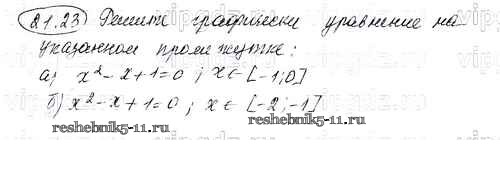 21.23 Решите графически уравнение на-
указанном промежутке:
а) x² - x + 1 = 0 ; x ∈ [-1; 0]
б) x² - x + 1 = 0 ; x ∈ [-2; -1]
reshebnik5-11.ru reshebnik5-11.ru